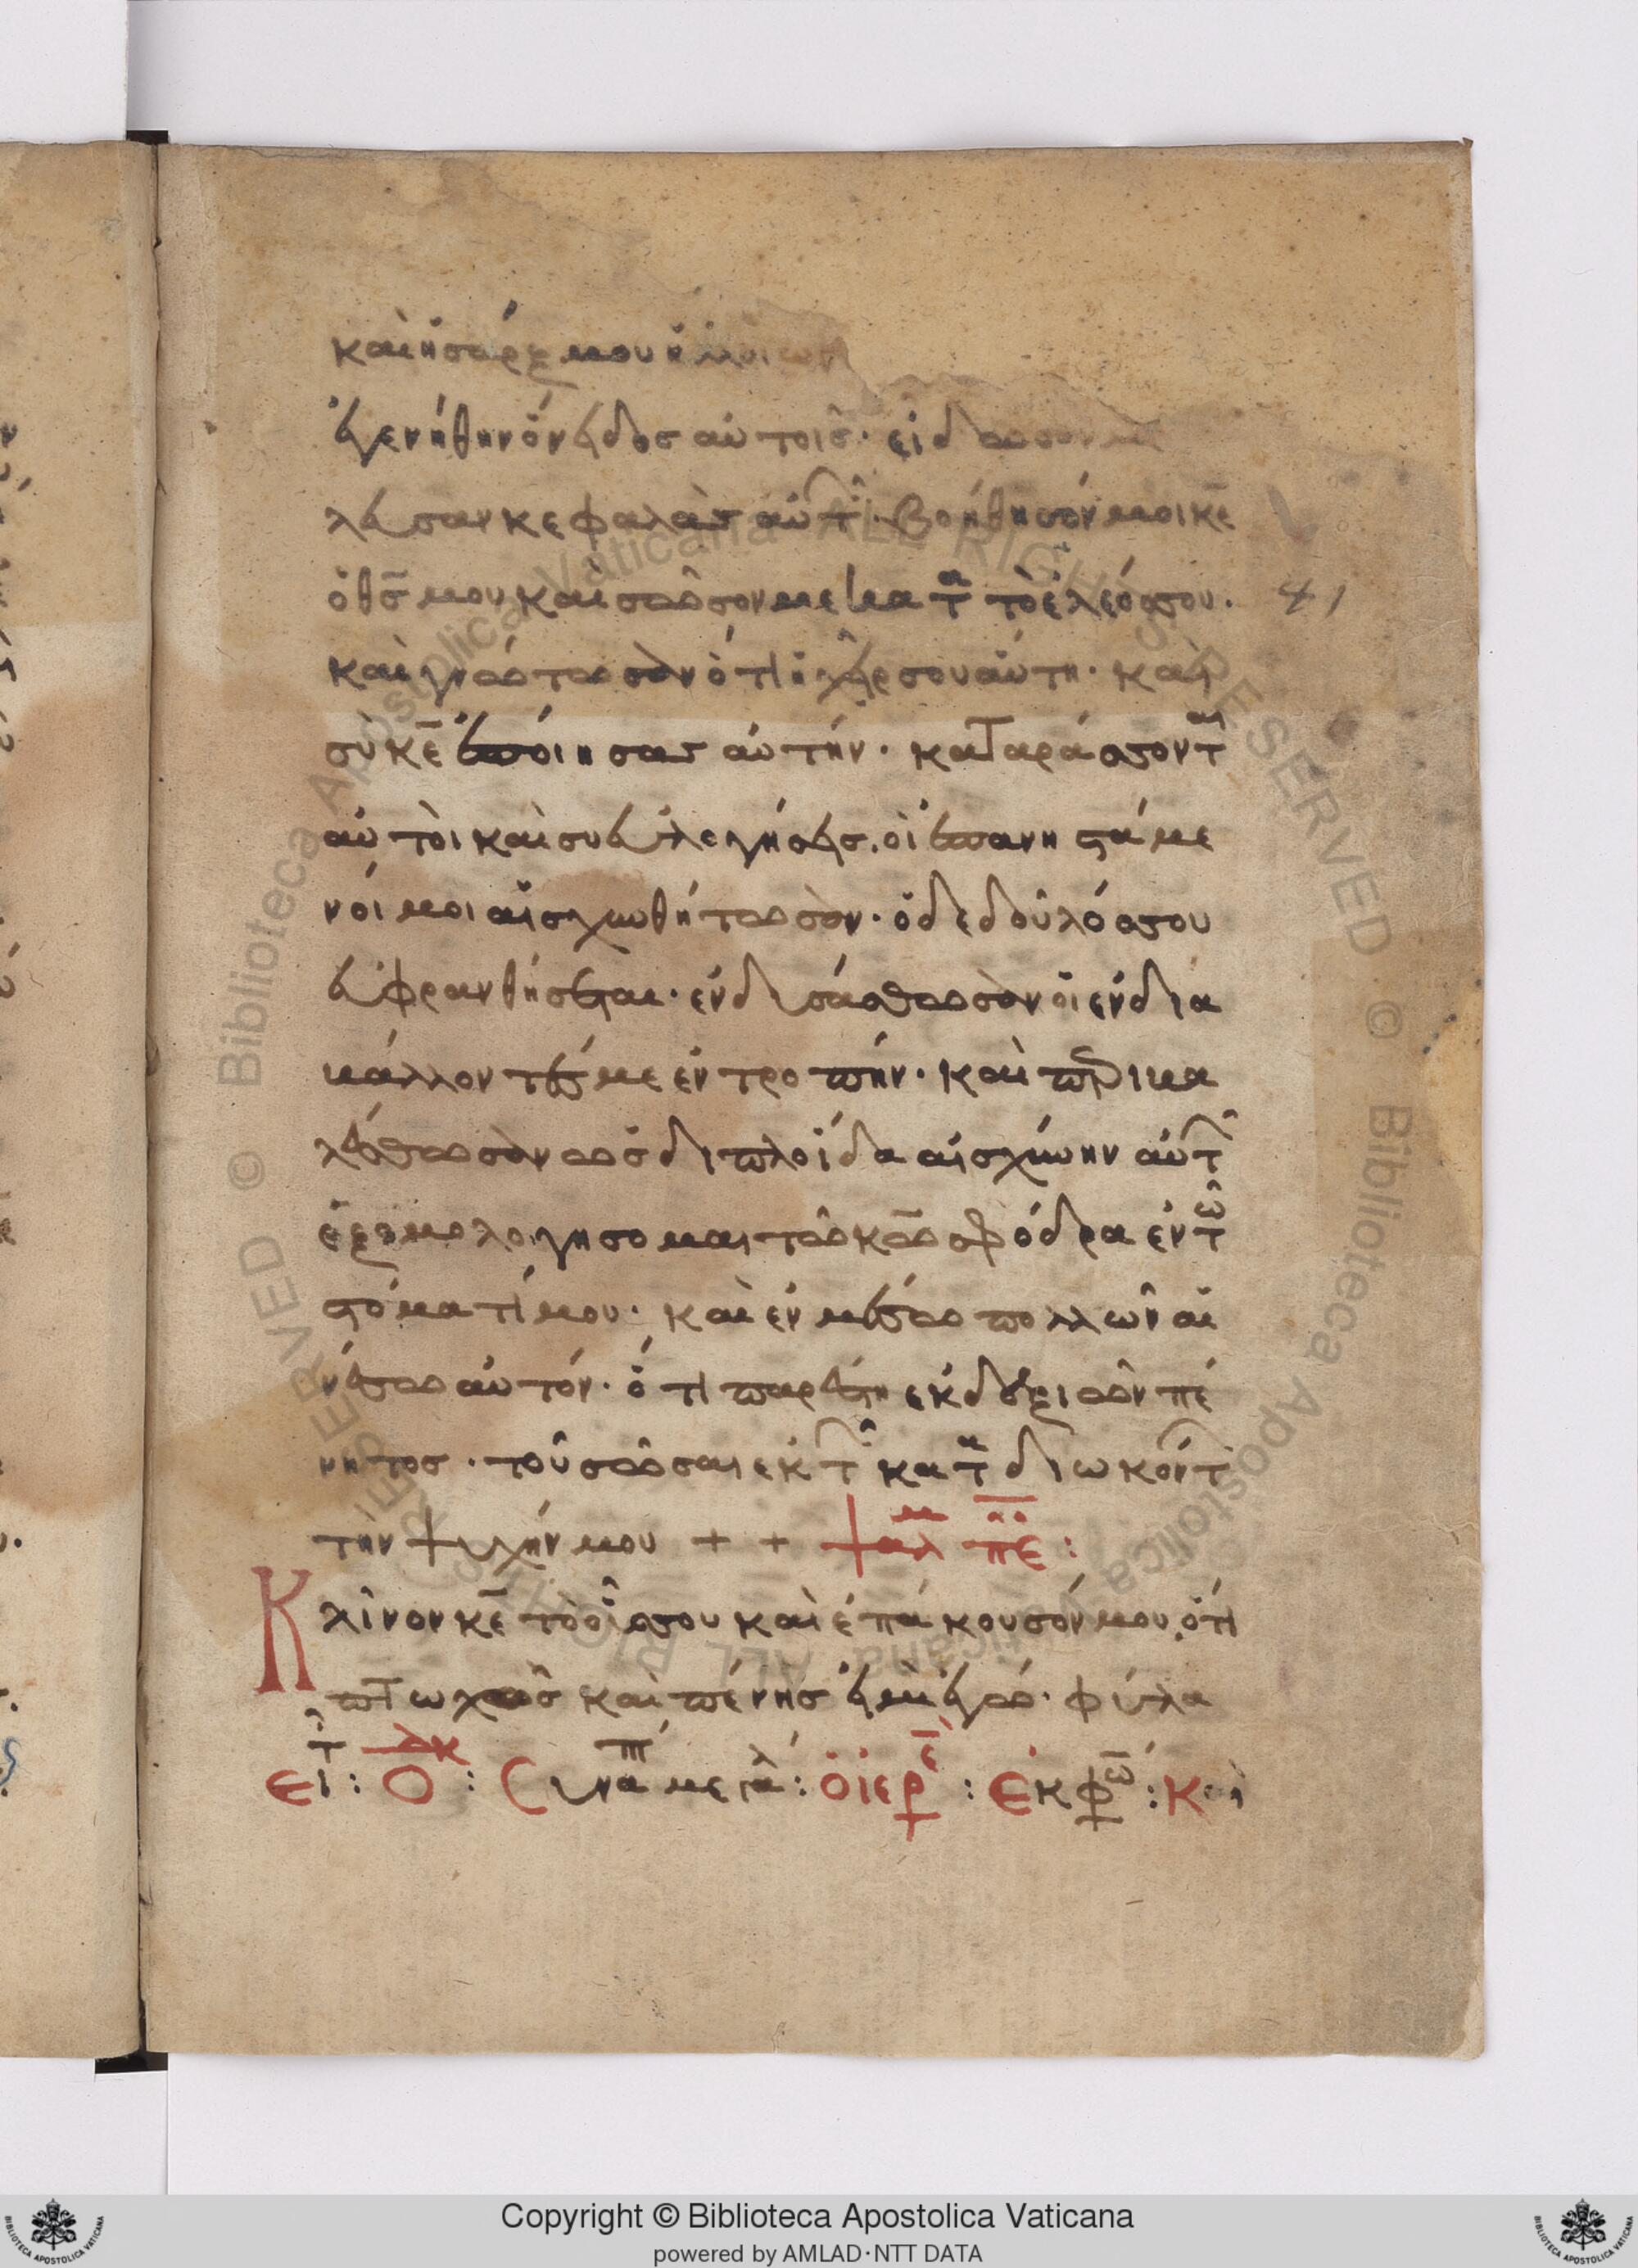 καὶ ἡ σάρξ μου ἠλλοιώθη
ἐγενήθην ὄνειδος αὐτοῖς· εἴδωσάν με
λευσαν κεφαλὰς αὐτ̑· βοήθησόν μοι κε̄
ὁ θς̄ μου καὶ σῶσον με κατ̑ᾱ τὸ ἔλεός σου·
καὶ γνώτωσαν ὅτι ἡ χείρ σου αὕτη· καὶ
σὺ κε̄ ἐποίησας αὐτήν· καταράσοντ̑αι
αὐτοὶ καὶ σὺ εὐλογήσεις. οἱ ἐπανηστάμε
νοί μοι αἰσχυνθήτωσαν· ὁ δὲ δοῦλός σου
εὐφρανθήσεται· ἐνδυσάσθωσαν οἱ ἐνδια
βάλλοντές με ἐντροπήν· καὶ περιβα
λέσθωσαν ὡς διπλοΐδα αἰσχύνην αὐτ̑
ἐξομολογήσομαι τῶ κω̄ σφόδρα ἐν τ̑ῶ
στόματί μου· καὶ ἐν μέσω πολλῶν αἰ
νέσω αὐτόν· ὅτι παρέστη ἐκ δεξιῶν πέ
νητος· τοῦ σῶσαι ἐκ τ̑ κατᾱ διωκόντ̑
τὴν ψυχήν μου + + ψαλμ π̄ε̄:
Κλῖνον κε̄ τὸ οὖς σου καὶ ἐπάκουσόν μου, ὅτι
πτωχὸς καὶ πένης εἰμὶ ἐγώ· φύλα
ει τ̑: Ὁ λκ: Συναπ μεγά λ: ὁ ἱερε̄: Ἐκφω̄: Κ
41
Copyright © Biblioteca Apostolica Vaticana
powered by AMLAD·NTT DATA